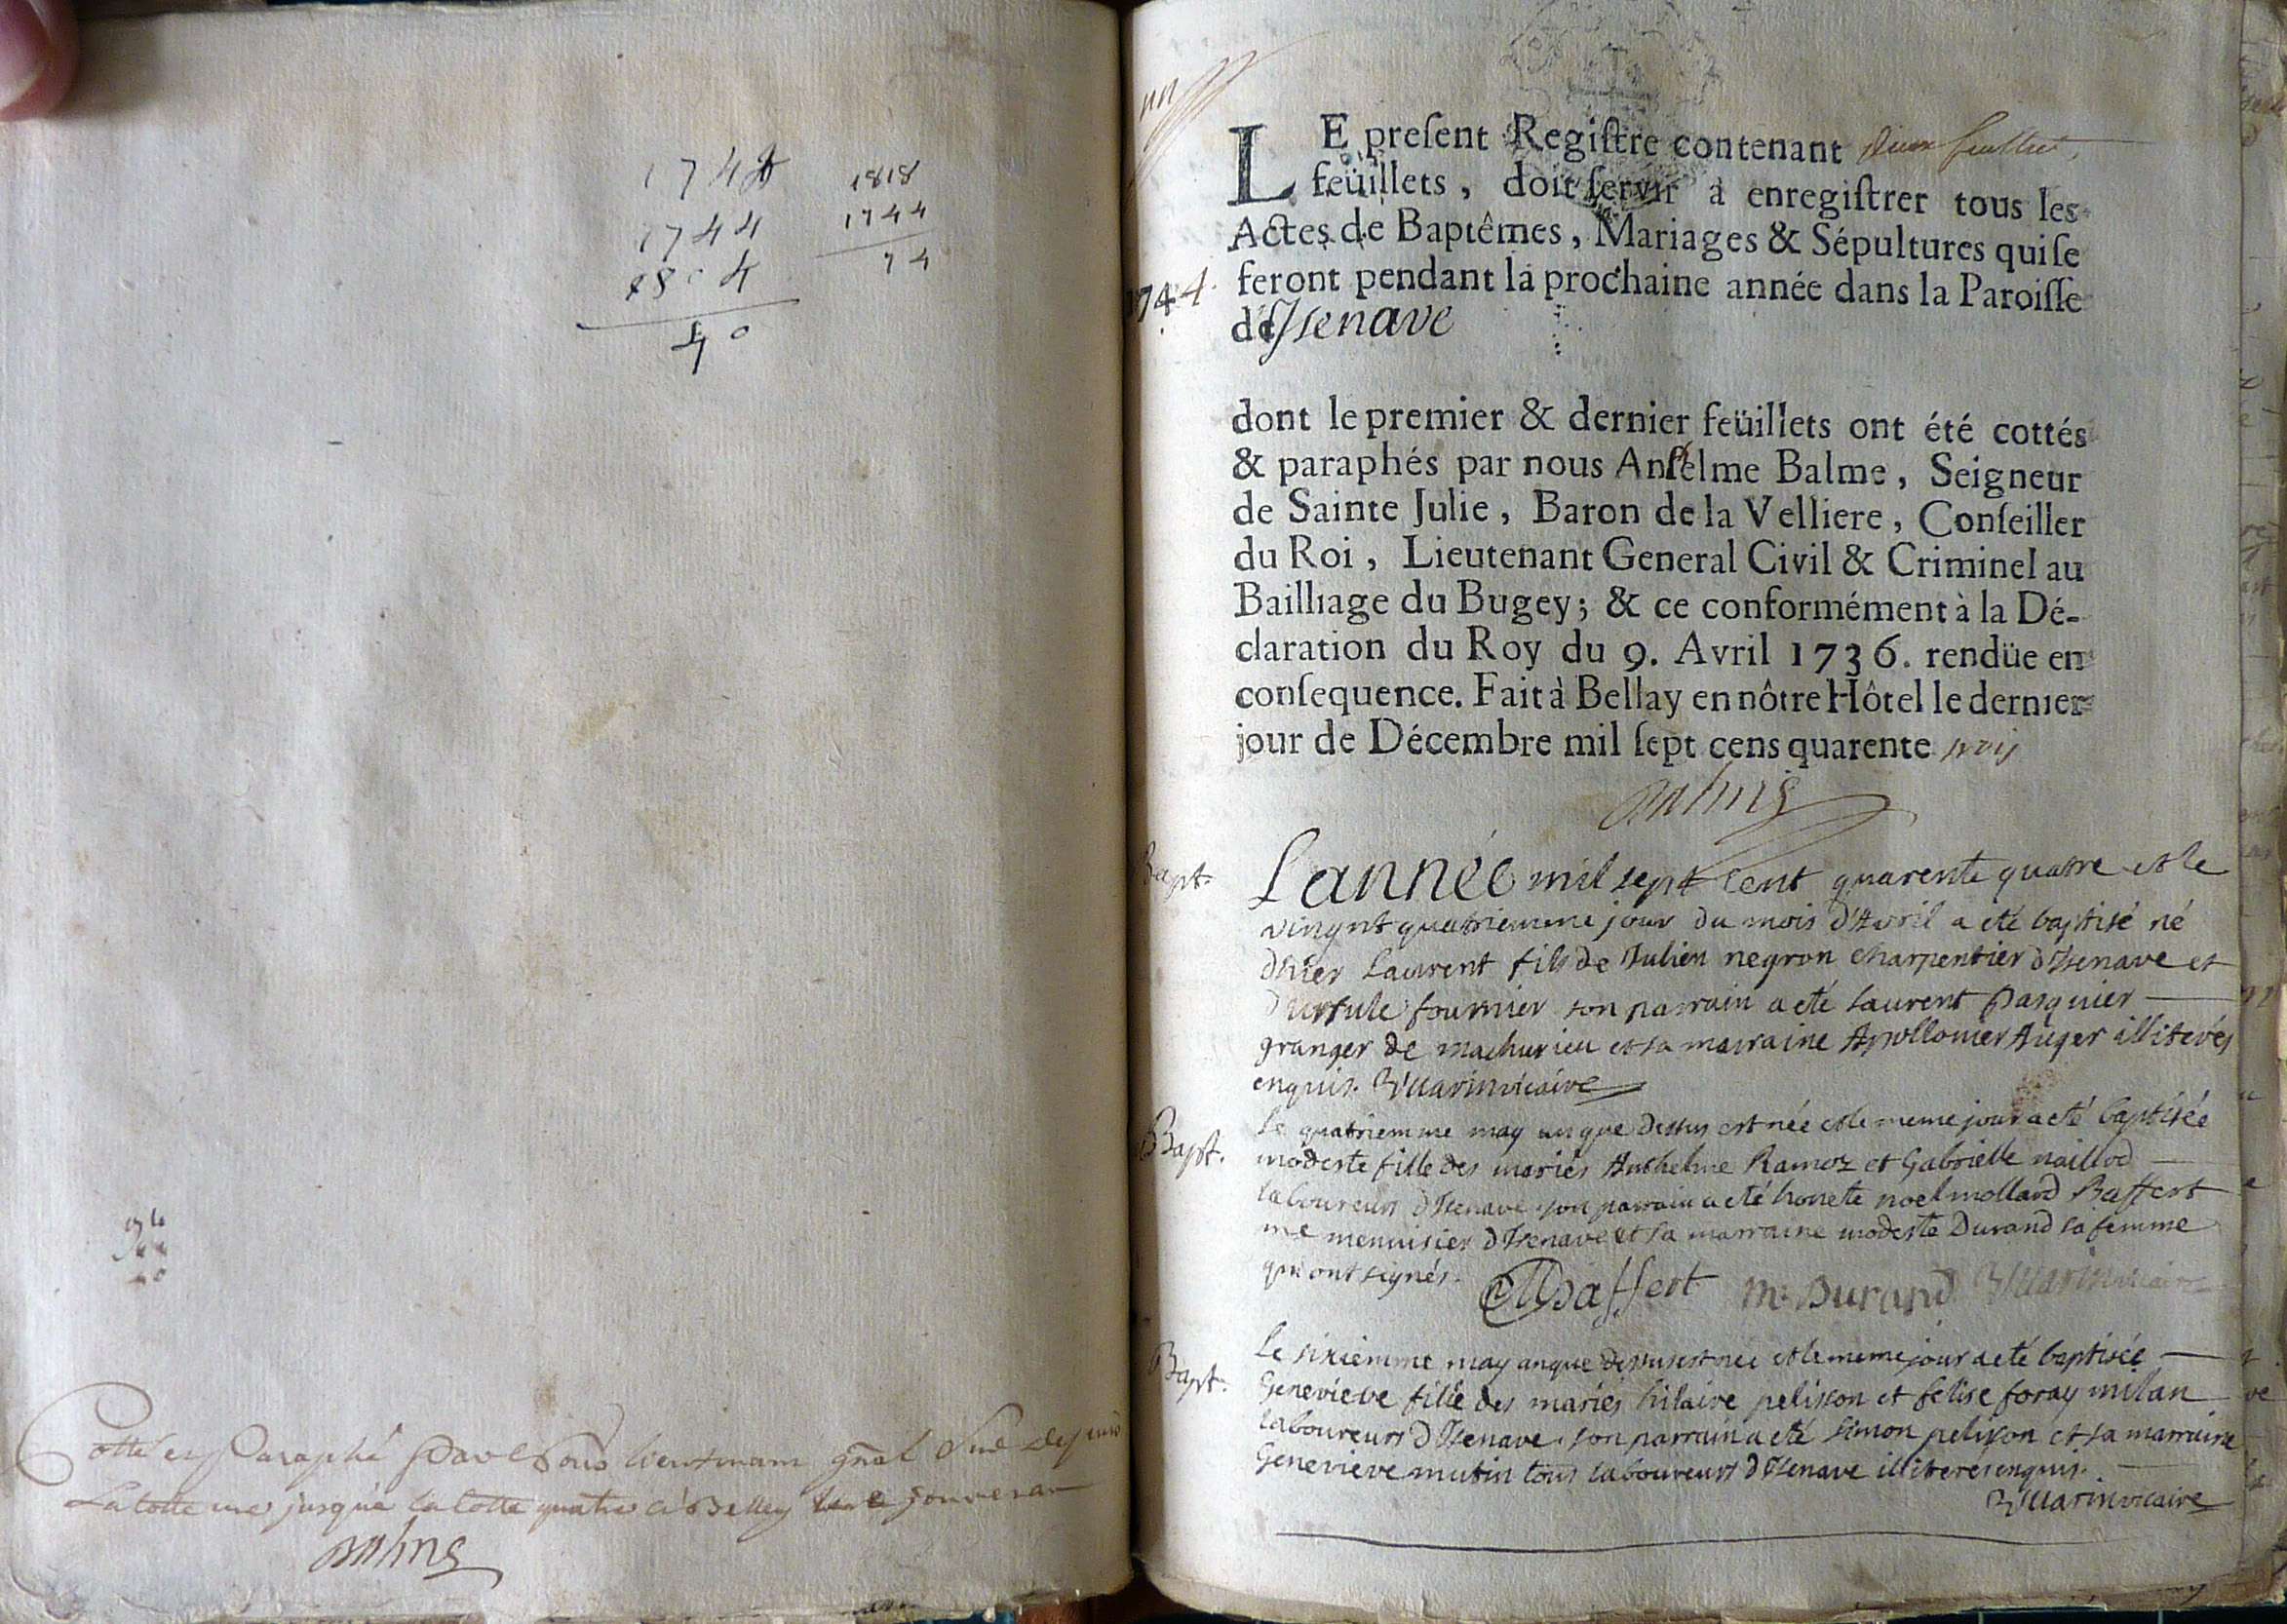 1744
1744
1804
40
1818
1744
74
Cotté et Paraphé Par Nous lieutenant gñal
La cotte une jusqu'a la cotte quatre a Belley
Balme
LE preſent Regiſtre contenant
feüillets, doit ſervir à enregiſtrer tous les
Actes de Baptêmes, Mariages & Sépultures qui ſe
1744.
feront pendant la prochaine année dans la Paroiſſe
d'Isenave
dont le premier & dernier feüillets ont été cottés
& paraphés par nous Anſelme Balme, Seigneur
de Sainte Julie, Baron de la Velliere, Conſeiller
du Roi, Lieutenant General Civil & Criminel au
Bailliage du Bugey; & ce conformément à la Dé-
claration du Roy du 9. Avril 1736. rendüe en
conſequence. Fait à Bellay en nôtre Hôtel le dernier
jour de Décembre mil ſept cens quarente trois
Balme
Bapt.
L'année mil sept cent quarente quatre et le
vingnt quatriemme jour du mois d'Avril a eté baptisé né
d'hier Laurent fils de Julien negron charpentier d'Isenave et
d'ursule fournier son parrain a eté laurent Pasquier
granger de machurieu et sa marraine Apollonier Auger illiterés
enquis. vicaire
Bapt.
Le quatriemme may an que dessus est née et le meme jour a eté baptisée
modeste fille des mariés Anthelme Ramoz et Gabrielle naillod
laboureurs d'Isenave son parrain a eté honete noel mollard Baffert
me menuisier d'Isenave et sa marraine modeste Durand sa femme
qui ont signés.
Baffert M. Durand vicaire
Bapt.
Le sixiemme may an que dessus est née et le meme jour a eté baptisée
Genevieve fille des mariés hilaire pelisson et felise foray milan
laboureurs d'Isenave. son parrain a eté simon pelisson et sa marraine
Genevieve mutin tous laboureurs d'Isenave illiteres enquis.
vicaire